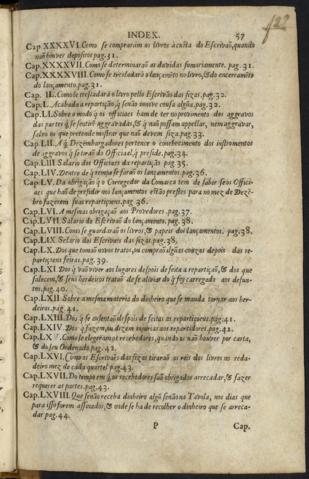 INDEX. 57
Cap.XXXXVI. Como se compraram os livros à custa do Escrivaõ, quando
naõ houver depositos pag.31.
Cap.XXXXVII. Como se determinaraõ as duvidas sumariamente. pag.31.
Cap.XXXXVIII. Como se tresladarà o lançamẽto no livro, & do encerramẽto
do lançamento. pag.31.
Cap. IL. Como se tresladarà o livro pello Escrivaõ das sizas. pag.32.
Cap.L. Acabada a repartiçaõ, q̃ senaõ mostre cousa algũa. pag.32.
Cap.LI. Sobre o modo q̃ os officiaes ham de ter no provimento dos aggravos
das partes q̃ se aggravadas, & q̃ naõ possam appellar, nem aggravar,
sobre os que pretende mostrar que naõ devem siza. pag.33.
Cap.LII. A q̃ Dezembargadores pertence o conhecimento dos instrumentos
de aggravos q̃ se tiraõ do Official, q̃ preside. pag.34.
Cap.LIII Salario dos Officiaes da repartiçaõ pag.35.
Cap.LIV. Dentro de q̃ tempo se faraõ os lançamentos. pag.36.
Cap.LV. Da obrigaçaõ q̃ o Corregedor da Comarca tem de saber se os Offici-
aes que haõ de presidir nos lançamentos estão prestes para no mez de Dezẽ-
bro fazerem suas repartiçoens. pag.36.
Cap.LVI. A mesma obrigaçaõ aos Provedores. pag.37.
Cap.LVII. Salario do Escrivaõ do lançamento. pag.38.
Cap.LVIII. Como se guardaraõ os livros, & papeis dos lançamentos. pag.38.
Cap.LIX. Salario dos Escrivaẽs das sizas pag.38.
Cap.LX. Dos que tomaõ novos tratos, ou compraõ algũas cousas depois das re-
partiçoens feitas pag.39.
Cap.LXI. Dos q̃ vaõ viver aos lugares despois de feita a repartiçaõ, & dos que
falecem, & seus herdeiros trataõ de se alivar do q̃ foy carregado aos defun-
tos. pag.40.
Cap.LXII. Sobre a mesma materia do dinheiro que se manda tornar aos her-
deiros. pag.41.
Cap.LXIII. Dos q̃ se ausentaõ despois de feitas as repartiçoens. pag.41.
Cap.LXIV. Dos q̃ fazem, ou dizem injurias aos repartidores. pag.41.
Cap.LXV. Como se elegeram os recebedores, quando os naõ houver por carta,
& do seu Ordenado. pag.42.
Cap.LXVI. Como os Escrivaẽs das sizas tiraraõ os rois dos livros no seda-
deiro mez de cada quartel pag.43.
Cap.LXVII. Do tempo em q̃ os recebedores saõ obrigados arrecadar, & fazer
requerer as partes. pag.43.
Cap.LXVIII. Que senaõ receba dinheiro algũ senaõ na Távola, nos dias que
para isso forem assinados, & onde se ha de recolher o dinheiro que se arreca-
dar pag.44.
P Cap.